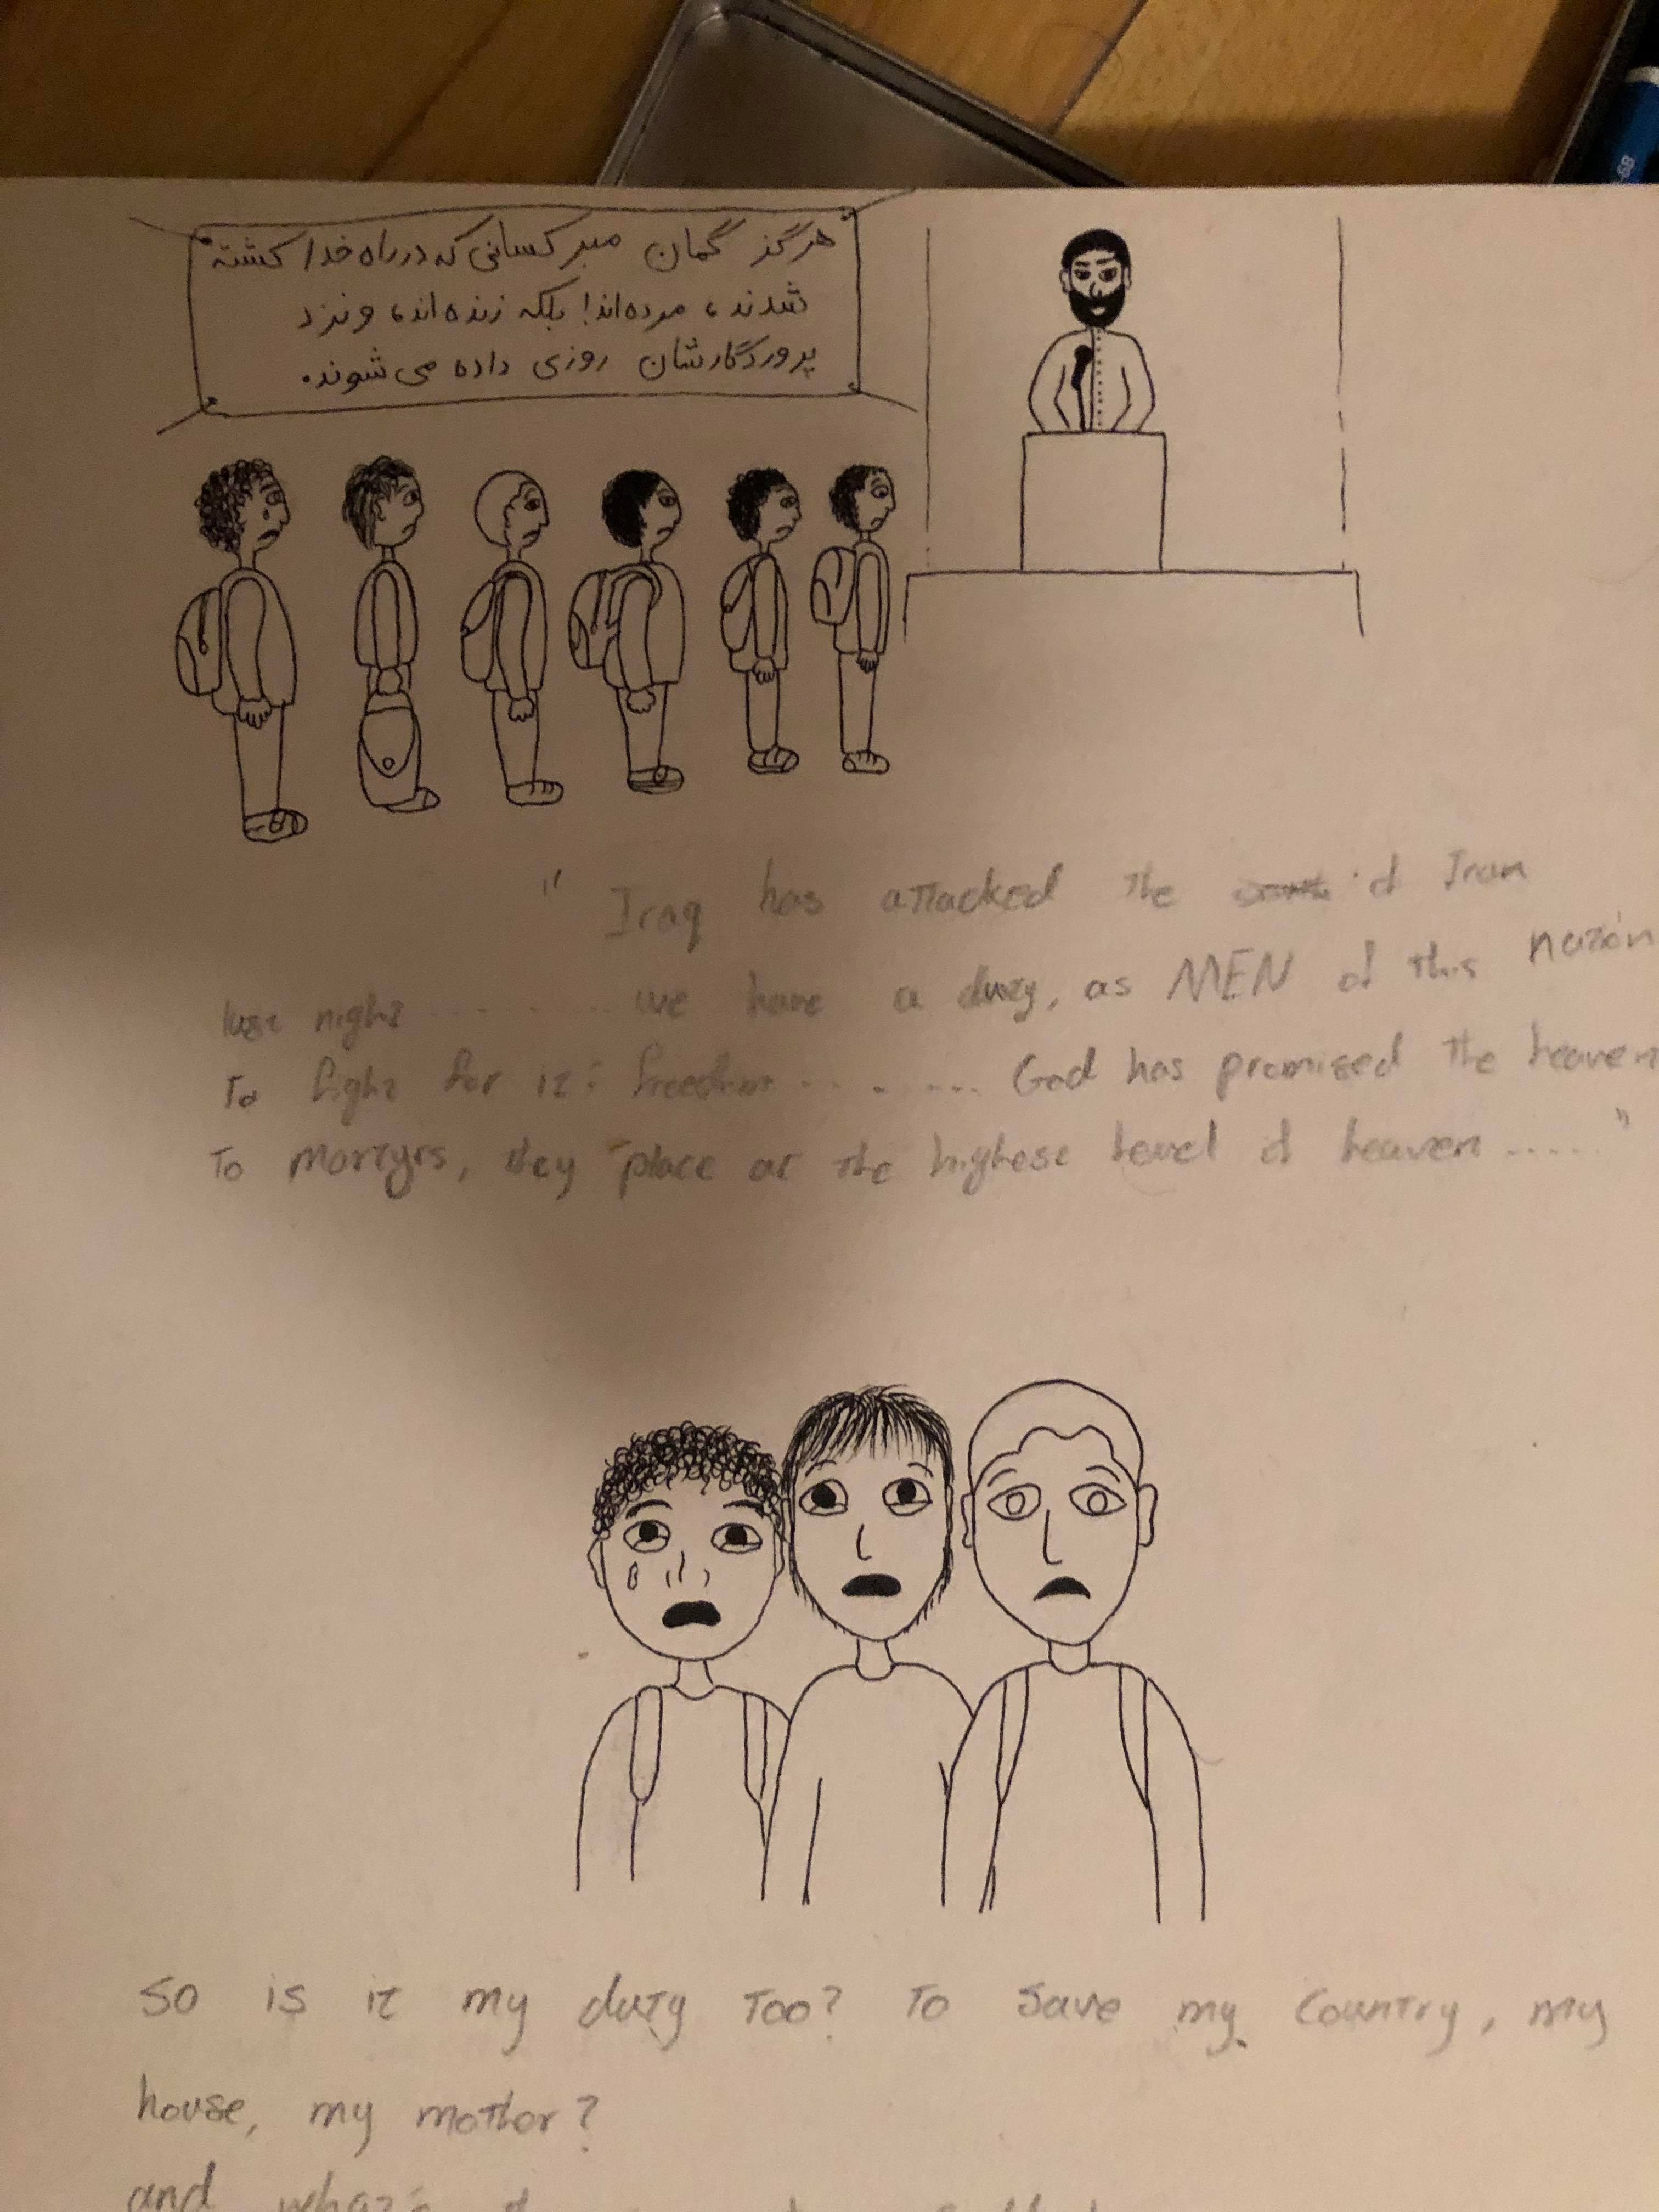 هرگز گمان مبر کسانی که در راه خدا کشته
شدند، مرده‌اند! بلکه زنده‌اند، و نزد
پروردگارشان روزی داده می‌شوند.
" Iraq has attacked the of Iran
last night ......... we have a duty, as MEN of this nation
To fight for it's freedom ........ God has promised the heaven
To martyrs, they place at the highest level of heaven ..... "
So is it my duty Too? To save my Country, my
house, my mother?
and